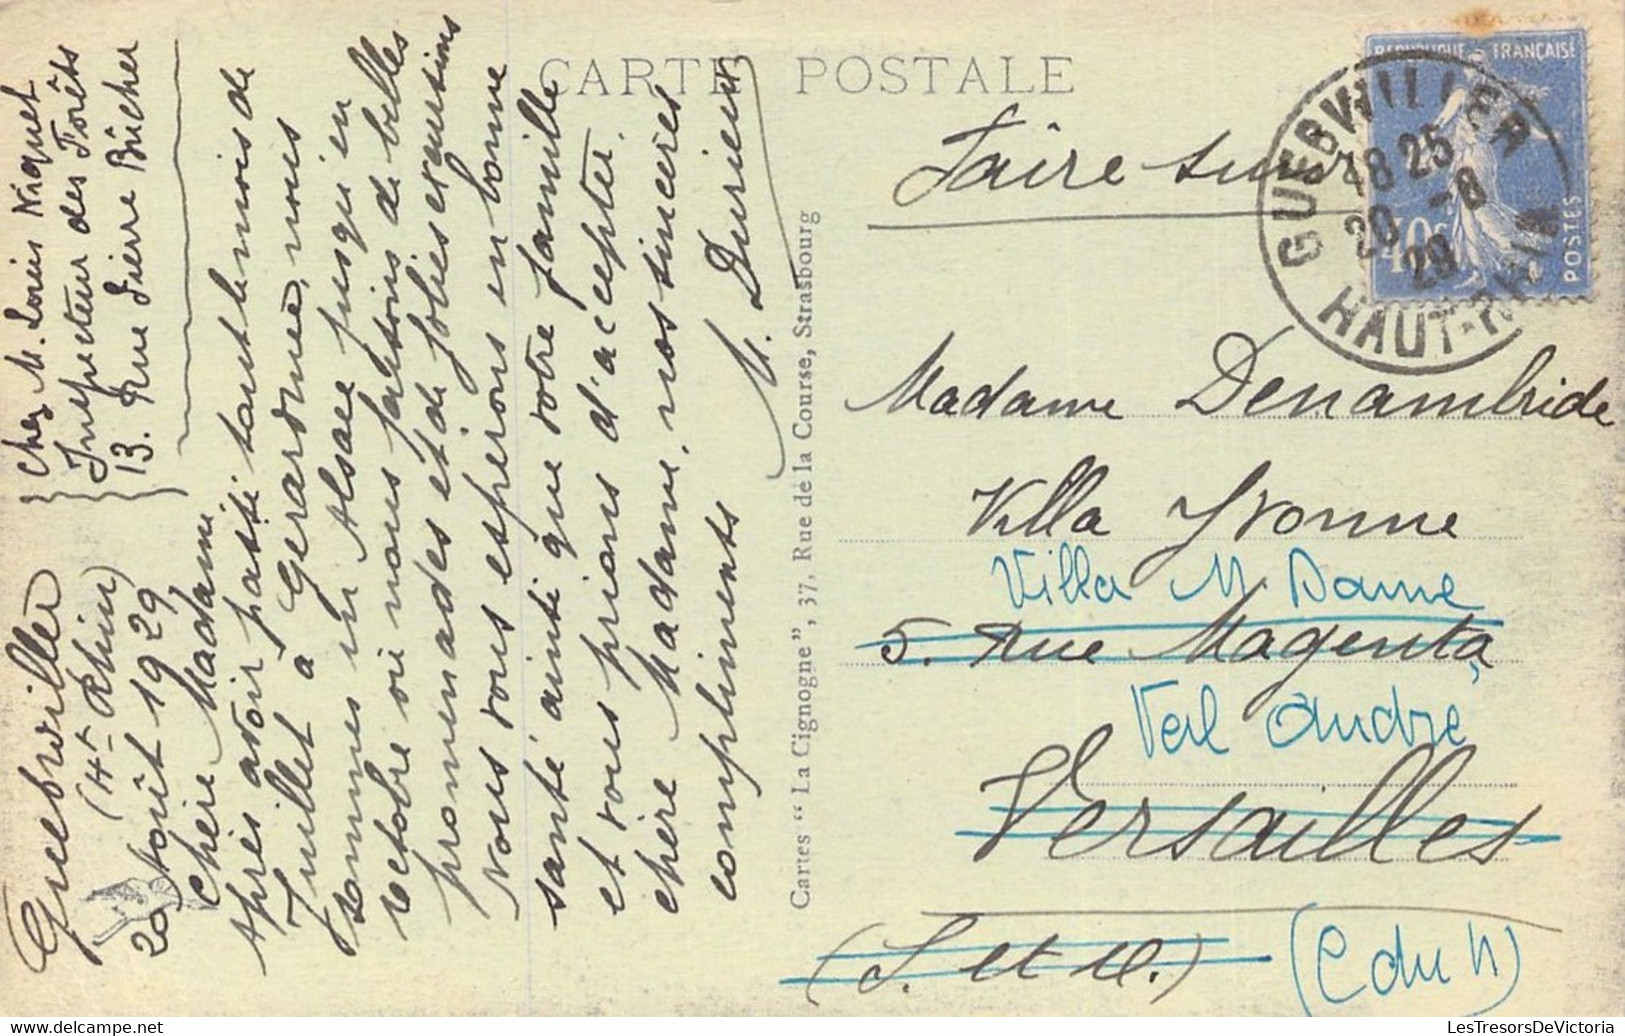 CARTE POSTALE
Chez M. Louis Niquet
Inspecteur des Forêts
13. Rue Pierre Bücher
Guebwiller
(Ht Rhin)
20 Août 1929
Chère Madame,
Après avoir passé tout le mois de
Juillet à Gérardmer, nous
sommes en Alsace jusqu'en
octobre où nous faisons de belles
promenades et de jolies excursions
Nous vous espérons en bonne
santé ainsi que votre famille
et vous prions d'accepter.
chère Madame, nos sincères
compliments
M. Durieux
Cartes "La Cignogne", 37, Rue de la Course, Strasbourg
Faire suivre
REPUBLIQUE FRANÇAISE
40c
POSTES
GUEBWILLER
18 25
20 -8
29
HAUT-RHIN
Madame Denambride
Villa Yvonne
Villa N Dame
5. Rue Magenta
Val André
Versailles
(S. et O.)
(C du N)
LesTresorsDeVictoria